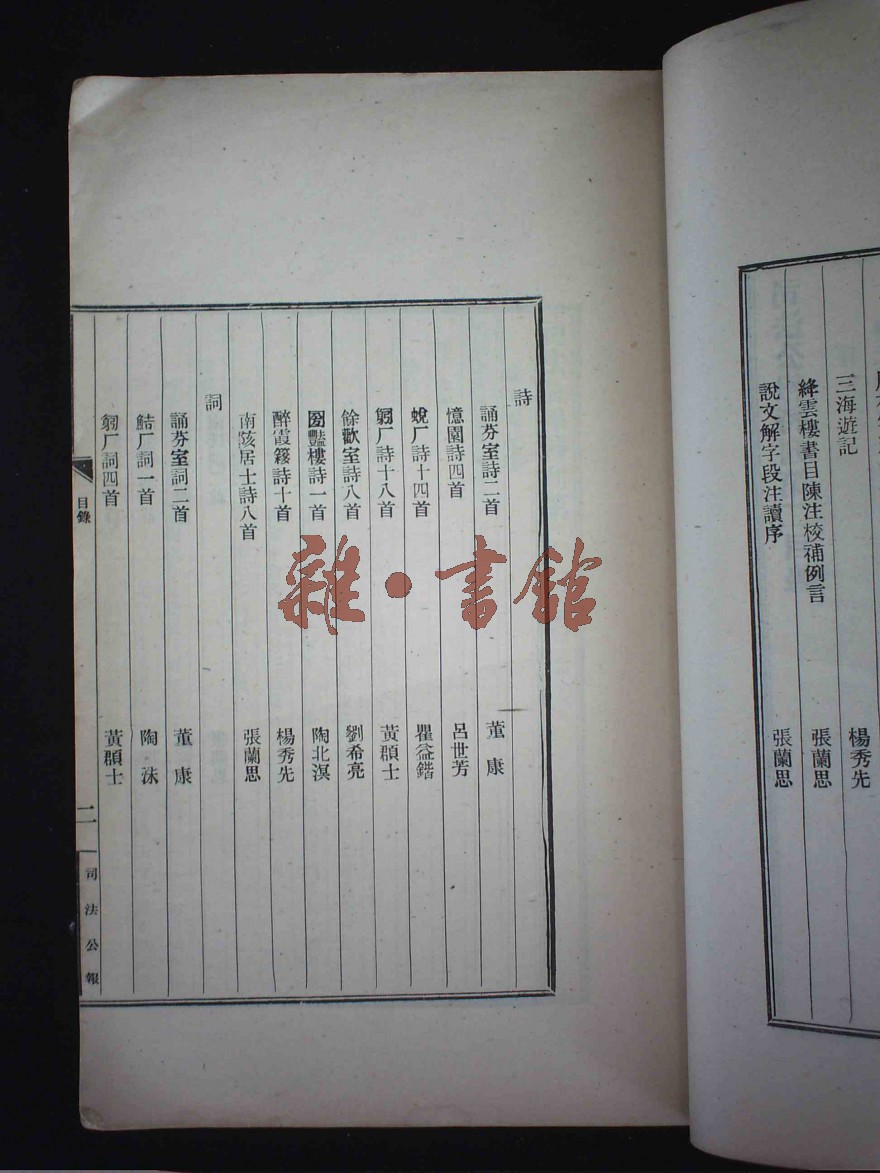 三海遊記
楊秀先
絳雲樓書目陳注校補例言
張蘭思
說文解字段注讀序
張蘭思
詩
誦芬室詩二首
董康
憶園詩四首
呂世芳
蛻厂詩十四首
瞿益鍇
匑厂詩十八首
黃頵士
餘歡室詩八首
劉希亮
豔樓詩一首
陶北溟
醉霞簃詩十首
楊秀先
南陔居士詩八首
張蘭思
詞
誦芬室詞二首
董康
鮚厂詞一首
陶洙
匑厂詞四首
黃頵士
目錄
二
司法公報
雜·書館